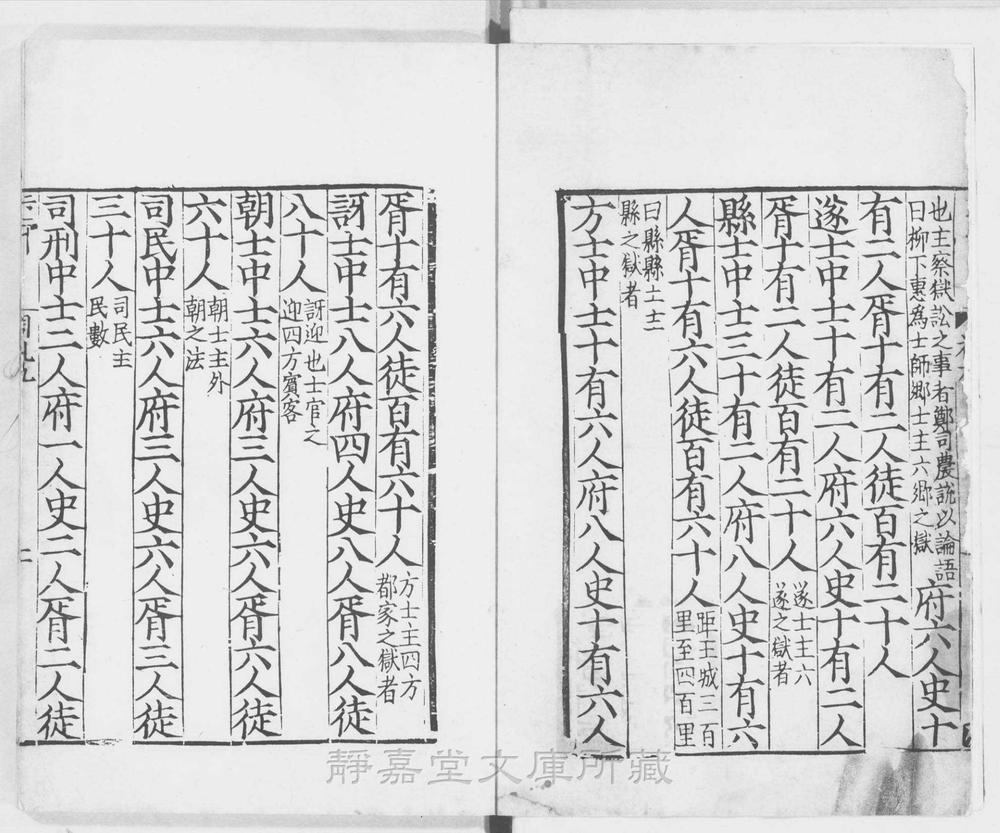 也主察獄訟之事者鄭司農說以論語
曰柳下惠為士師鄉士主六鄉之獄
府六人史十
有二人胥十有二人徒百有二十人
遂士中士十有二人府六人史十有二人
胥十有二人徒百有二十人
遂士主六
遂之獄者
縣士中士三十有二人府八人史十有六
人胥十有六人徒百有六十人
距王城三百
里至四百里
曰縣縣士主
縣之獄者
方士中士十有六人府八人史十有六人
胥十有六人徒百有六十人
方士主四方
都家之獄者
訝士中士八人府四人史八人胥八人徒
八十人
訝迎也士官之
迎四方賓客
朝士中士六人府三人史六人胥六人徒
六十人
朝士主外
朝之法
司民中士六人府三人史六人胥三人徒
三十人
司民主
民數
司刑中士二人府一人史二人胥二人徒
二
靜嘉堂文庫所藏